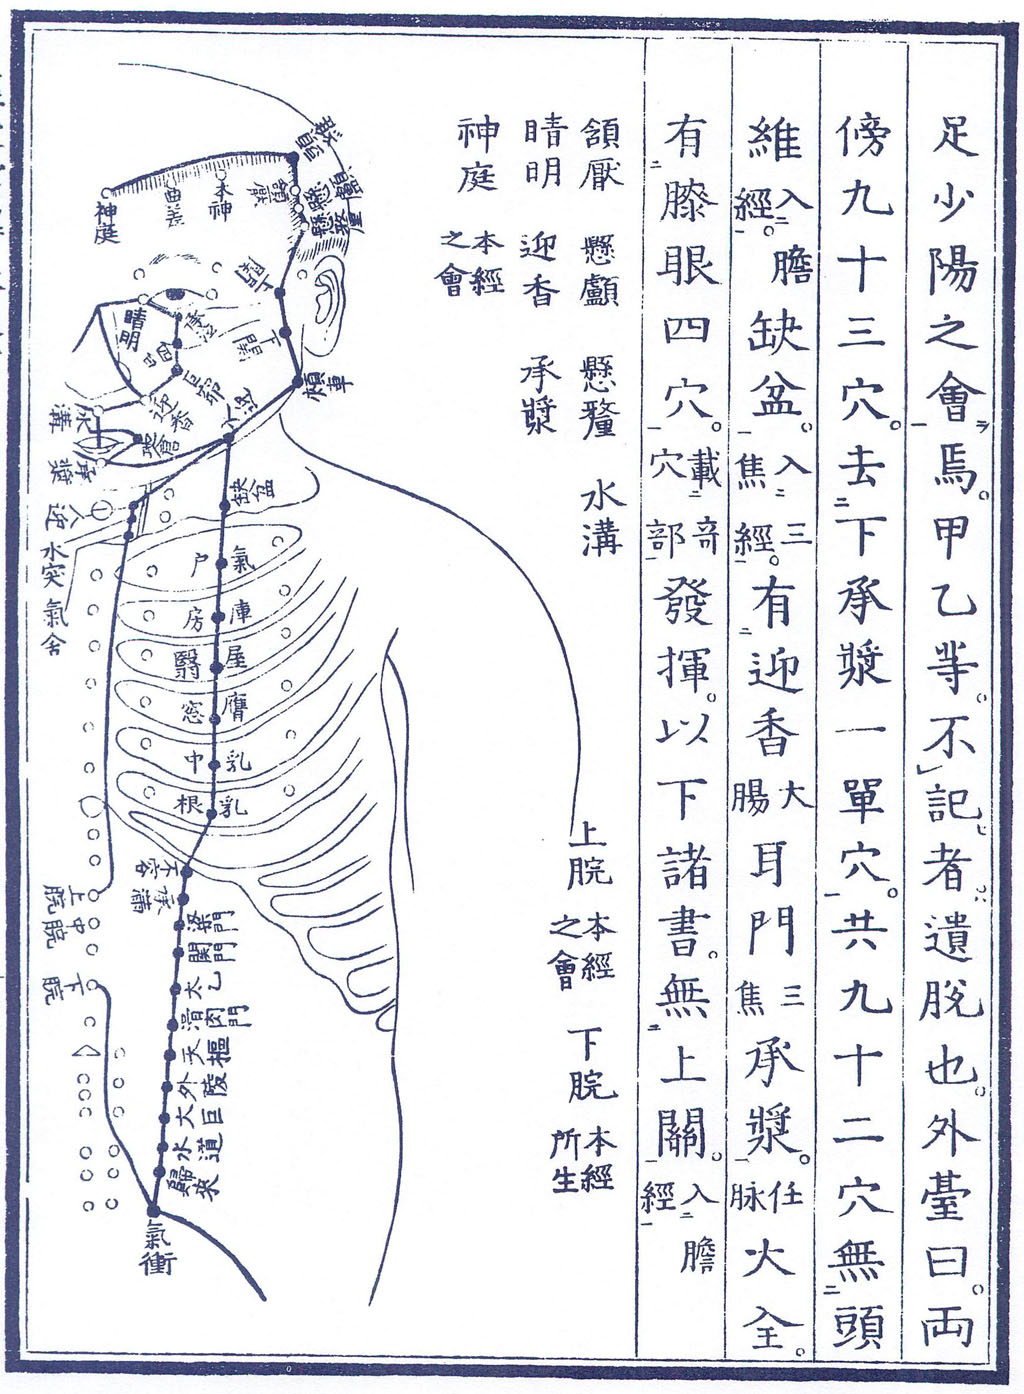 足少陽之會焉。甲乙等。不記者遺脫也。外臺曰。両
傍九十三穴。去下承漿一單穴。共九十二穴無頭
維入膽經。缺盆。入三焦經。有迎香大腸耳門三焦承漿。任脉火全。
有膝眼四穴。載奇穴部發揮。以下諸書。無上關。入膽經
頷厭 懸顱 懸釐 水溝
睛明 迎香 承漿
神庭 本經之會
上脘 本經之會 下脘 本經所生
頭維
本神
曲差
神庭
懸顱
懸釐
下關
頰車
睛明
承泣
四白
迎香
地倉
水溝
承漿
人迎
水突
氣舍
缺盆
氣戶
庫房
屋翳
膺窓
乳中
乳根
不容
承滿
梁門
關門
太乙
滑肉門
天樞
外陵
大巨
水道
歸來
氣衝
上脘
中脘
下脘